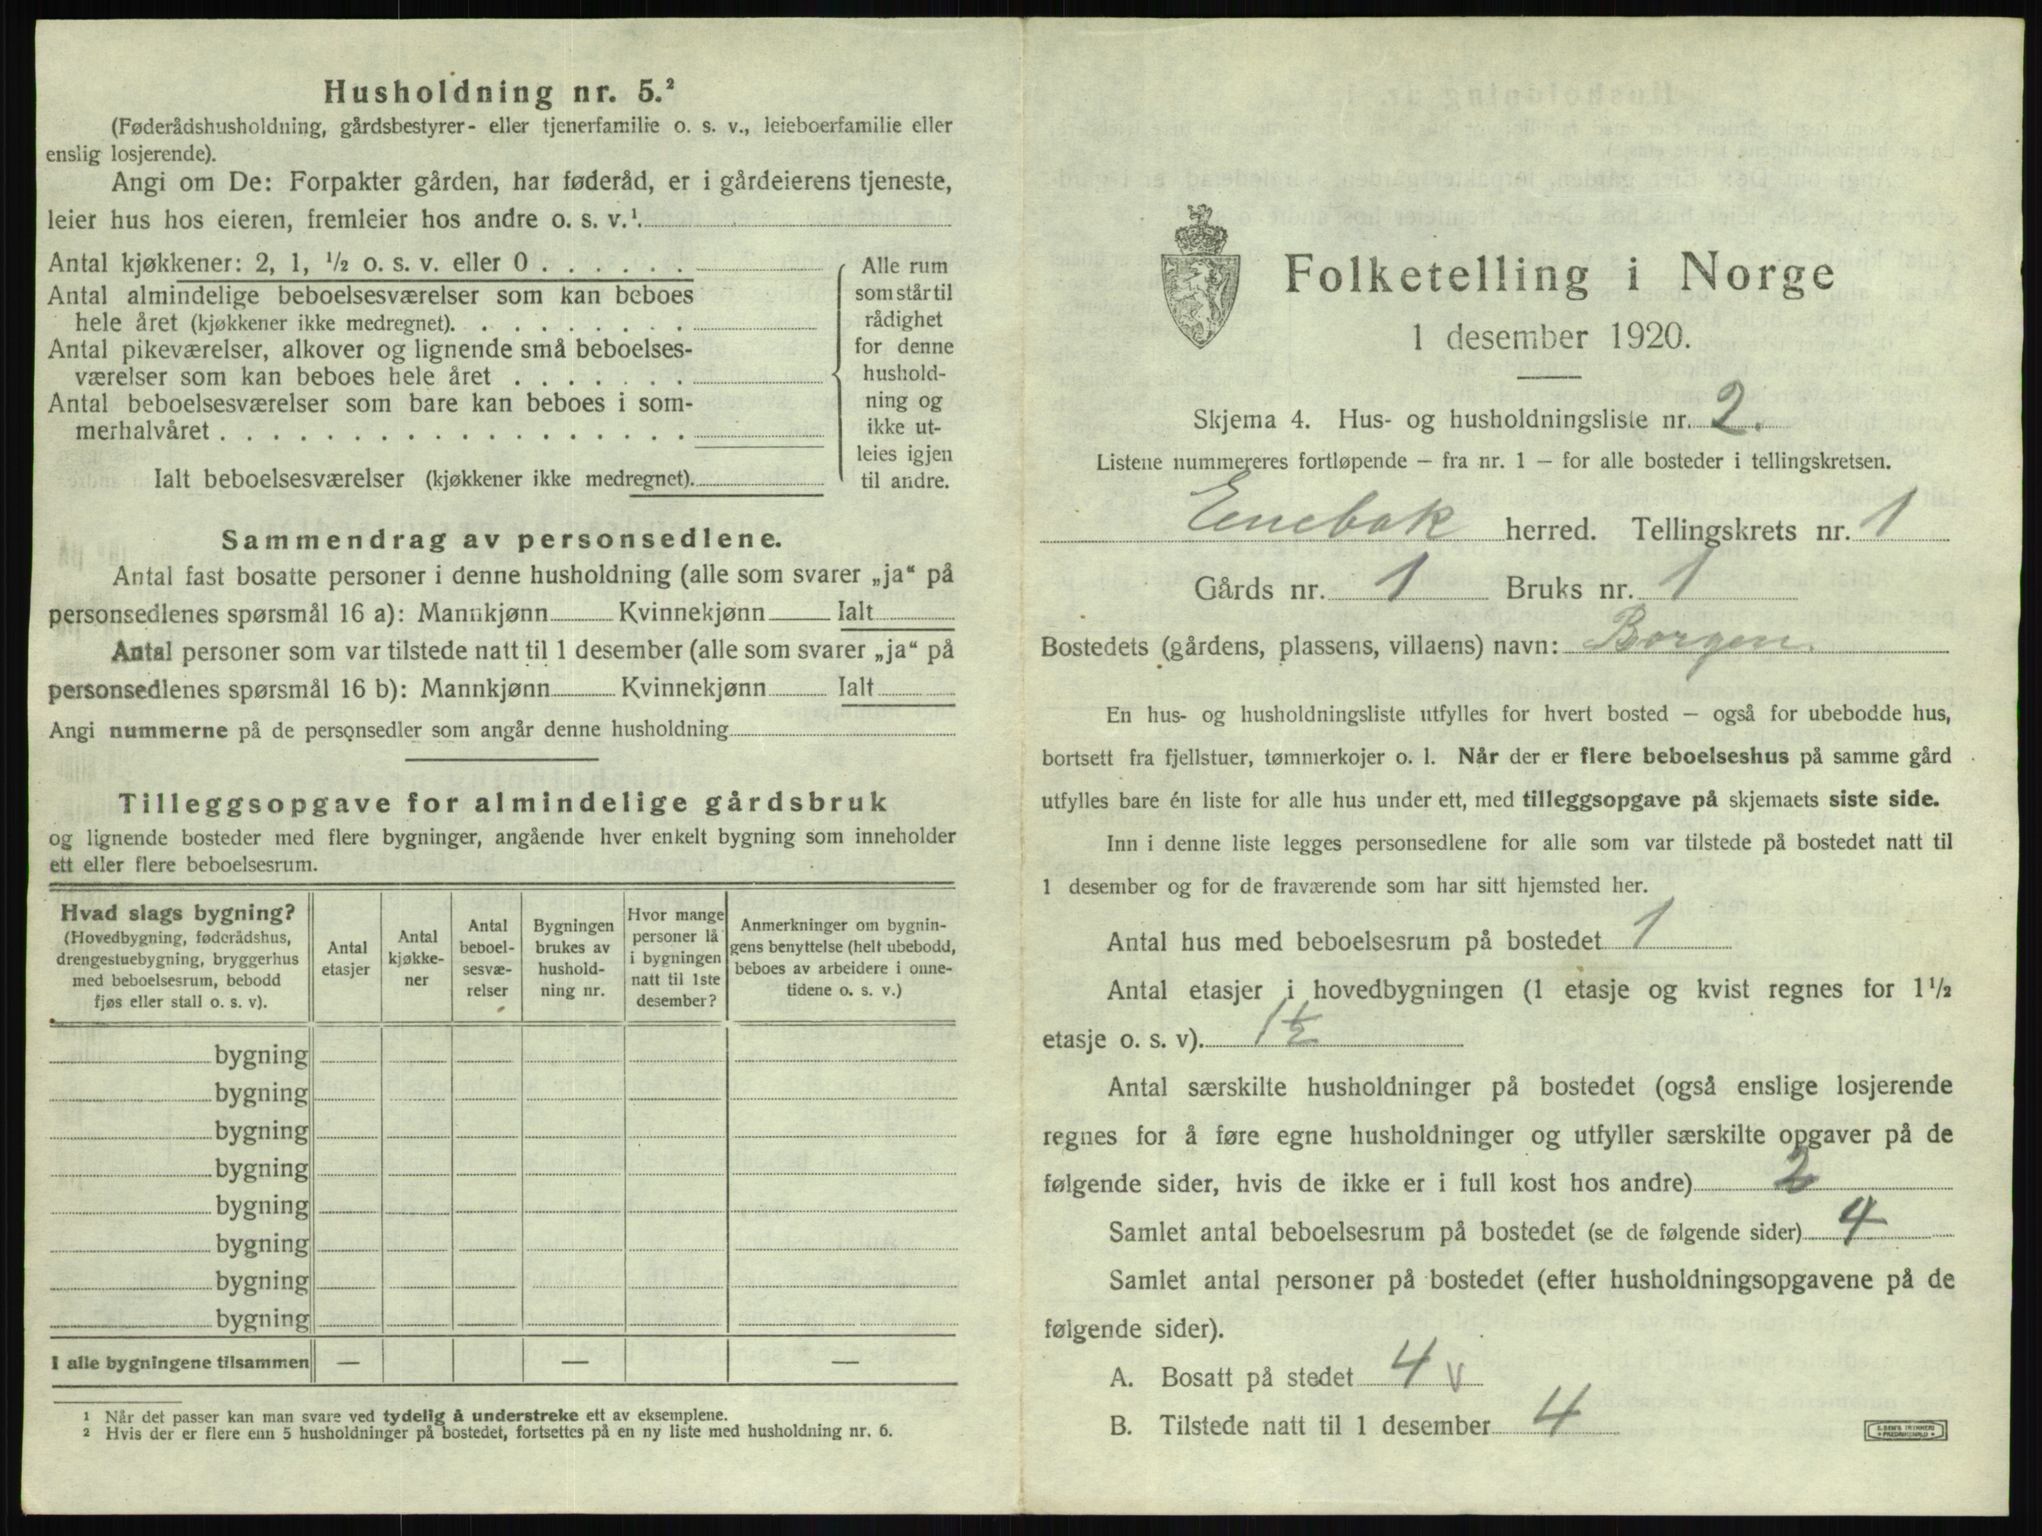 Husholdning nr. 5.²
(Føderådshusholdning, gårdsbestyrer- eller tjenerfamilie o. s. v., leieboerfamilie eller
enslig losjerende).
Angi om De: Forpakter gården, har føderåd, er i gårdeierens tjeneste,
leier hus hos eieren, fremleier hos andre o. s. v.¹.
Antal kjøkkener: 2, 1, ½ o. s. v. eller 0 . . . . . .
Antal almindelige beboelsesværelser som kan beboes
hele året (kjøkkener ikke medregnet). . . . . . . . .
Antal pikeværelser, alkover og lignende små beboelses-
værelser som kan beboes hele året . . . . . . .
Antal beboelsesværelser som bare kan beboes i som-
merhalvåret . . . . . . . . . . . . . . . . . .
Ialt beboelsesværelser (kjøkkener ikke medregnet).
Alle rum
som står til
rådighet
for denne
hushold-
ning og
ikke ut-
leies igjen
til andre.
Sammendrag av personsedlene.
Antal fast bosatte personer i denne husholdning (alle som svarer „ja“ på
personsedlenes spørsmål 16 a): Mannkjønn Kvinnekjønn Ialt
Antal personer som var tilstede natt til 1 desember (alle som svarer „ja“ på
personsedlenes spørsmål 16 b): Mannkjønn Kvinnekjønn Ialt
Angi nummerne på de personsedler som angår denne husholdning
Tilleggsopgave for almindelige gårdsbruk
og lignende bosteder med flere bygninger, angående hver enkelt bygning som inneholder
ett eller flere beboelsesrum.
Hvad slags bygning?
(Hovedbygning, føderådshus,
drengestuebygning, bryggerhus
med beboelsesrum, bebodd
fjøs eller stall o. s. v).
Antal
etasjer
Antal
kjøkke-
ner
Antal
beboel-
sesvæ-
relser
Bygningen
brukes av
hushold-
ning nr.
Hvor mange
personer lå
i bygningen
natt til 1ste
desember?
Anmerkninger om bygnin-
gens benyttelse (helt ubebodd,
beboes av arbeidere i onne-
tidene o. s. v.)
bygning
bygning
bygning
bygning
bygning
bygning
bygning
bygning
I alle bygningene tilsammen — — —
¹ Når det passer kan man svare ved tydelig å understreke ett av eksemplene.
² Hvis der er flere enn 5 husholdninger på bostedet, fortsettes på en ny liste med husholdning nr. 6.
Folketelling i Norge
1 desember 1920.
Skjema 4. Hus- og husholdningsliste nr. 2.
Listene nummereres fortløpende – fra nr. 1 – for alle bosteder i tellingskretsen.
Enebak herred. Tellingskrets nr. 1
Gårds nr. 1 Bruks nr. 1
Bostedets (gårdens, plassens, villaens) navn: Borgen.
En hus- og husholdningsliste utfylles for hvert bosted – også for ubebodde hus,
bortsett fra fjellstuer, tømmerkojer o. l. Når der er flere beboelseshus på samme gård
utfylles bare én liste for alle hus under ett, med tilleggsopgave på skjemaets siste side.
Inn i denne liste legges personsedlene for alle som var tilstede på bostedet natt til
1 desember og for de fraværende som har sitt hjemsted her.
Antal hus med beboelsesrum på bostedet 1
Antal etasjer i hovedbygningen (1 etasje og kvist regnes for 1½
etasje o. s. v). 1½
Antal særskilte husholdninger på bostedet (også enslige losjerende
regnes for å føre egne husholdninger og utfyller særskilte opgaver på de
følgende sider, hvis de ikke er i full kost hos andre) 2
Samlet antal beboelsesrum på bostedet (se de følgende sider) 4
Samlet antal personer på bostedet (efter husholdningsopgavene på de
følgende sider).
A. Bosatt på stedet 4 v
B. Tilstede natt til 1 desember 4